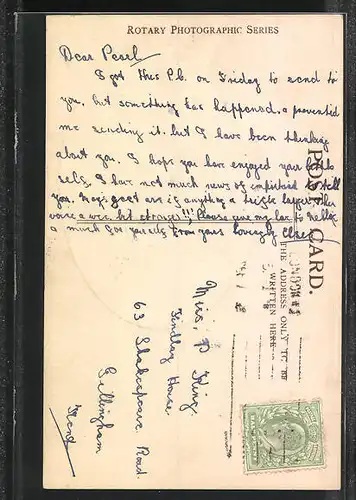 ROTARY PHOTOGRAPHIC SERIES
Dear Pearl
I got this P.C. on Friday to send to
you, but something has happened & prevented
me sending it. but I have been thinking
about you. I hope you have engaged your
self, I have not much news of to tell
you. are if anything a
worse a wee bit stronger!!! Please give my to
a much from yours lovingly
POST CARD.
THE ADDRESS ONLY TO BE
WRITTEN HERE
Miss, P King
Findlay House
63 Shakespeare Road.
Gillingham
Kent